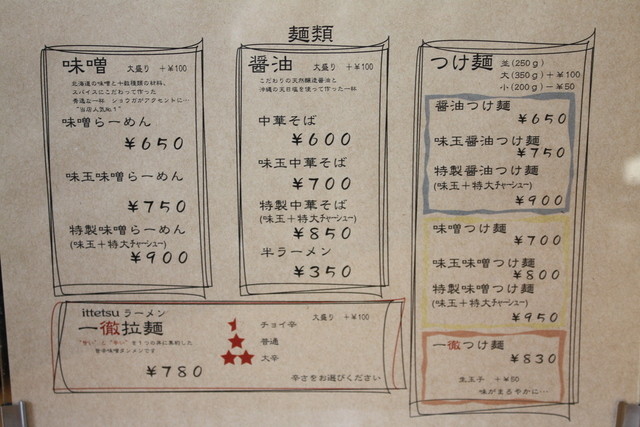 麺類
味噌 大盛り +¥100
北海道の味噌と十数種類の材料、
スパイスにこだわって作った
香味の一杯 ショウガがアクセントに…
"当店人気№1"
味噌らーめん
¥650
味玉味噌らーめん
¥750
特製味噌らーめん
(味玉+特大チャーシュー)
¥900
醤油 大盛り +¥100
こだわりの天然醸造醤油と
沖縄の天日塩を使って作った一杯
中華そば
¥600
味玉中華そば
¥700
特製中華そば
(味玉+特大チャーシュー)
¥850
半ラーメン
¥350
つけ麺 並(250g)
大(350g)+¥100
小(200g)−¥50
醤油つけ麺
¥650
味玉醤油つけ麺
¥750
特製醤油つけ麺
(味玉+特大チャーシュー)
¥900
味噌つけ麺
¥700
味玉味噌つけ麺
¥800
特製味噌つけ麺
(味玉+特大チャーシュー)
¥950
一徹つけ麺
¥830
生玉子 +¥50
味がまろやかに…
ittetsu ラーメン
一徹拉麺
"辛い"と"辛い"を1つの丼に集約した
旨辛味噌タンメンです
¥780
大盛り +¥100
チョイ辛
普通
大辛
辛さをお選びください